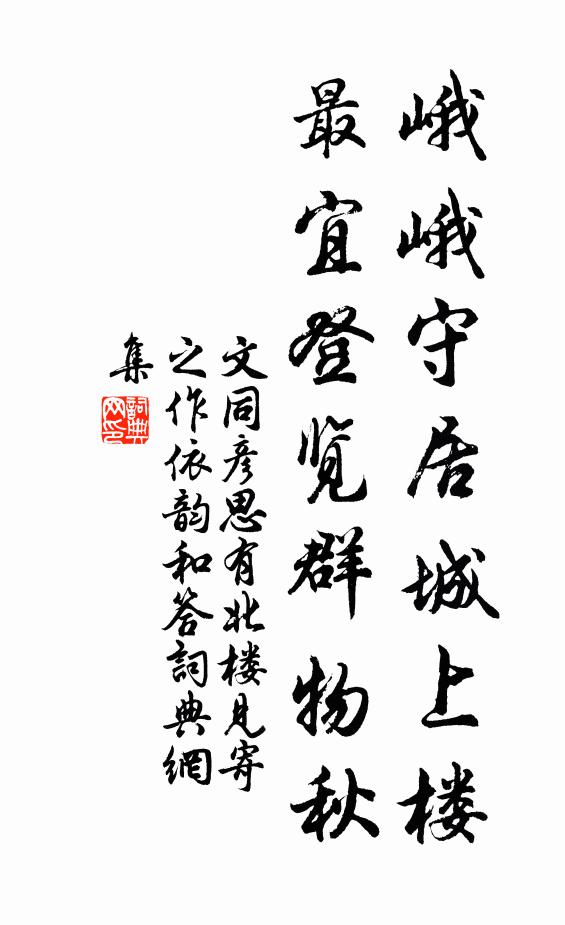 峨峨守居城上楼
最宜登览群物秋
文同彦思有北楼见寄
之作依韵和答詞典網
集
詞典
网印